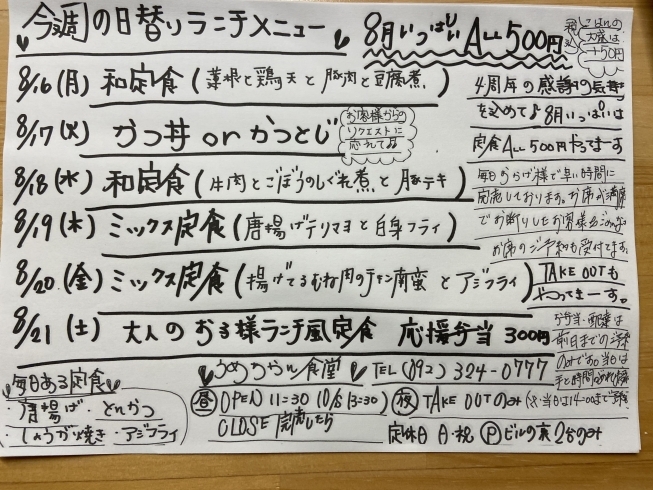 今週の日替りランチメニュー
8月いっぱい ALL 500円
ごはんの
大盛は
+50円
8/16(月) 和定食(菜根と鶏天と豚肉と豆腐煮)
8/17(火) かつ丼 or かつとじ
お客様からの
リクエストに
応えて
8/18(水) 和定食(牛肉とごぼうのしぐれ煮と豚テキ)
8/19(木) ミックス定食(唐揚げテリマヨと白身フライ)
8/20(金) ミックス定食(揚げてるむね肉のチキン南蛮とアジフライ)
8/21(土) 大人のお子様ランチ風定食 応援弁当 300円
4周年の感謝の気持
を込めて♪8月いっぱいは
定食ALL500円やってまーす
毎日おかげ様で早い時間に
完売しております。お席が満席
でお断りしたお客様
お席のご予約も受付てます。
TAKE OUTも
やってまーす。
お弁当・配達は
前日までの予約
のみです。当日は
毎日ある定食
・唐揚げ・とんかつ
・しょうが焼き・アジフライ
うめちゃん食堂 TEL(092)324-0777
昼 OPEN 11:30 (O/S 13:30)
CLOSE 完売したら
夜 TAKE OUTのみ(※当日は14:00まで予約)
定休日 日・祝 Ⓟビルの裏2台のみ